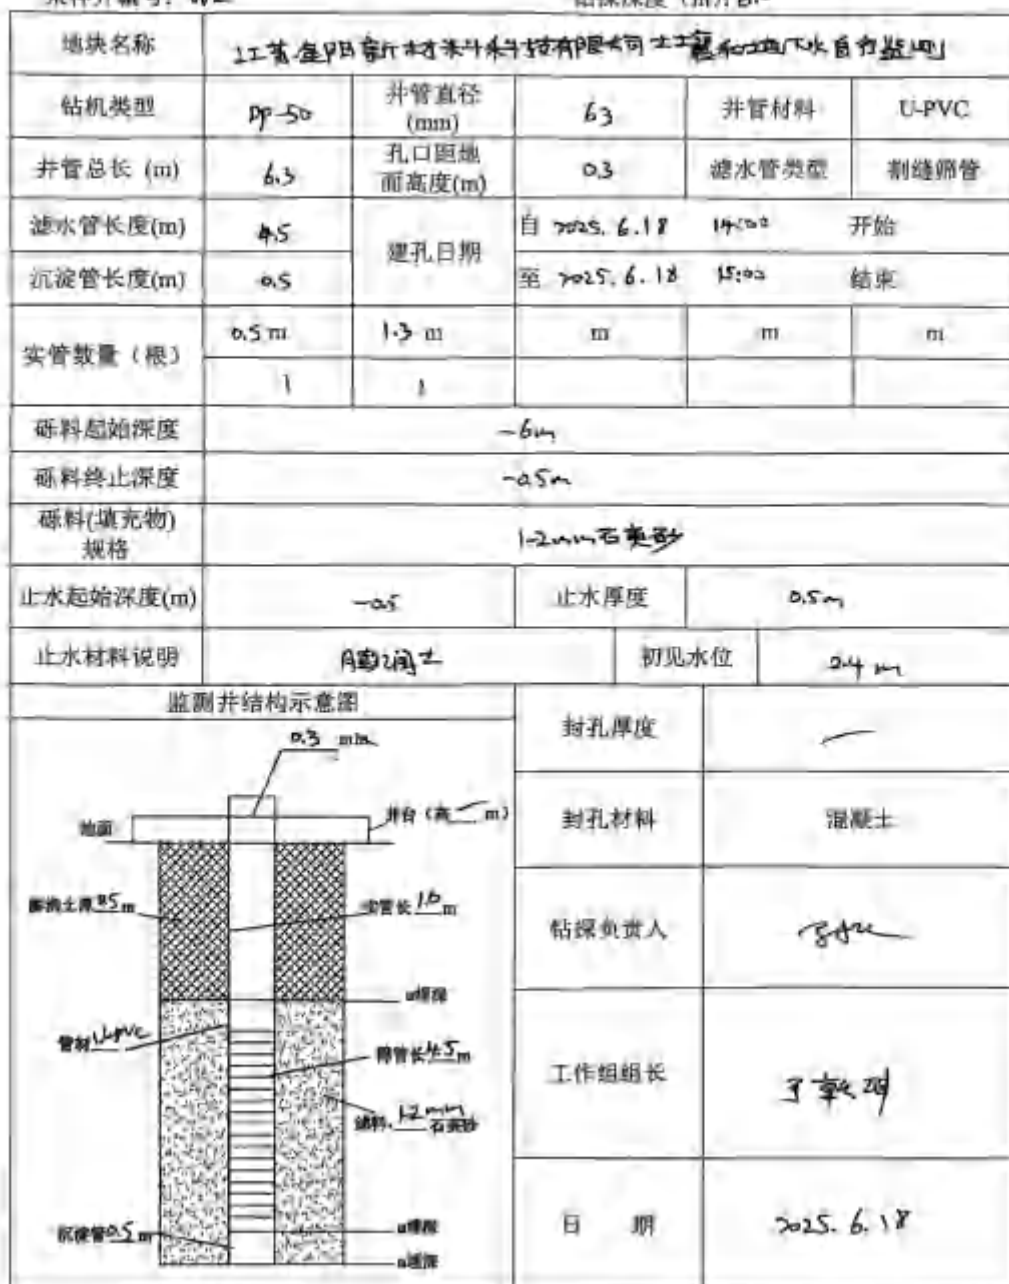 地块名称 江苏金阳新材料科技有限公司土壤和地下水自行监测
钻机类型 DP-50 井管直径(mm) 63 井管材料 U-PVC
井管总长 (m) 6.3 孔口距地面高度(m) 0.3 滤水管类型 割缝筛管
滤水管长度(m) 4.5 建孔日期 自 2025.6.18 14:00 开始
沉淀管长度(m) 0.5 至 2025.6.18 15:00 结束
实管数量（根） 0.5 m 1.3 m m m m
1 1
砾料起始深度 -6m
砾料终止深度 -0.5m
砾料(填充物)规格 1-2mm石英砂
止水起始深度(m) -0.5 止水厚度 0.5m
止水材料说明 膨润土 初见水位 2.4 m
监测井结构示意图
0.3
地面
井台（高 — m）
膨润土厚0.5m
实管长1.0m
管材U-PVC
筛管长4.5m
滤料 1-2mm
石英砂
沉淀管0.5m
封孔厚度 —
封孔材料 混凝土
钻探负责人
工作组组长
日 期 2025.6.18